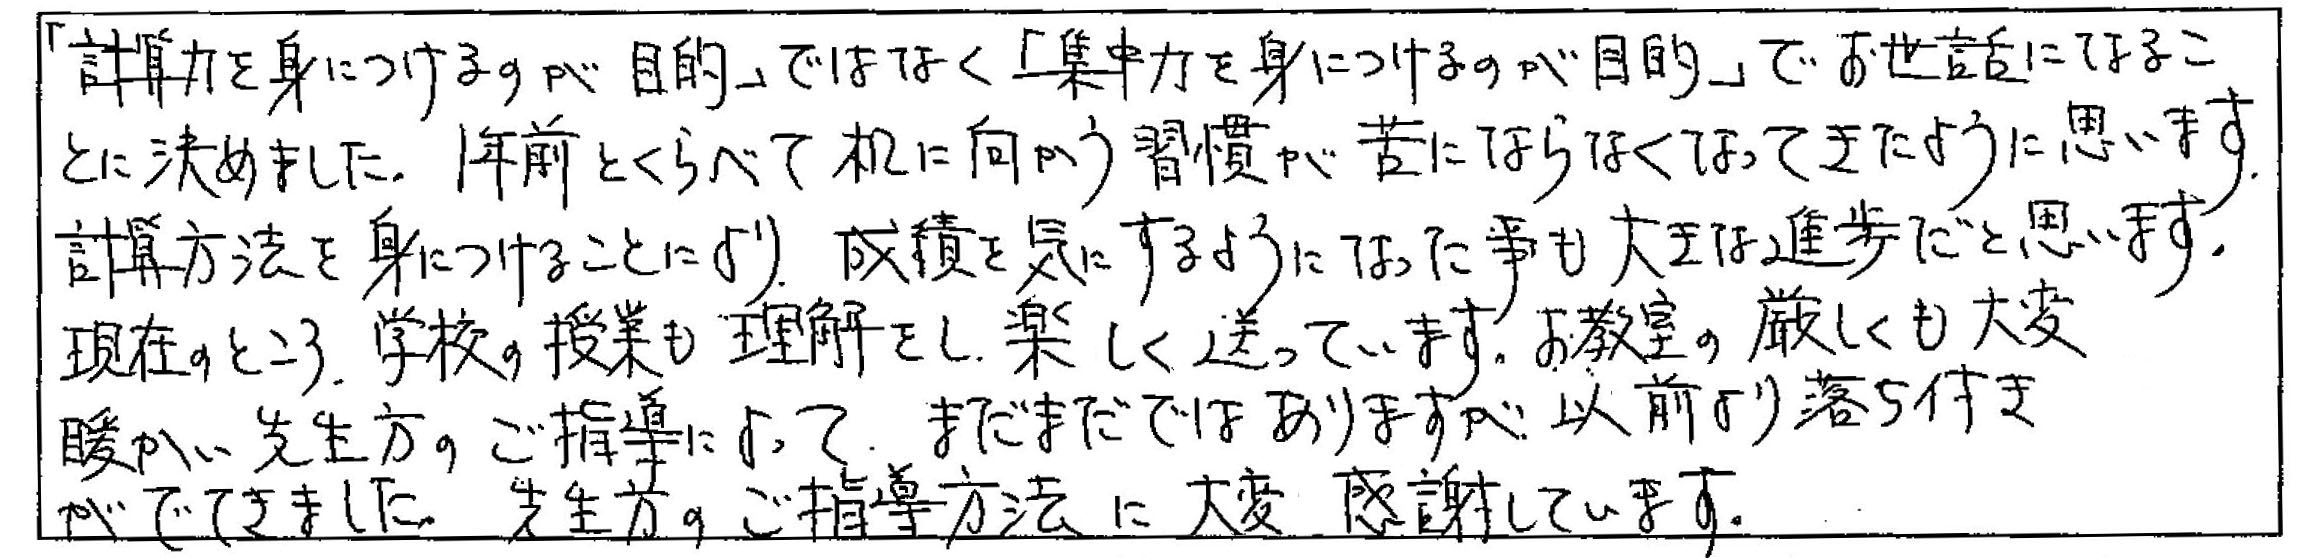 「計算力を身につけるのが目的」ではなく「集中力を身につけるのが目的」でお世話になるこ
とに決めました。1年前とくらべて机に向かう習慣が苦にならなくなってきたように思います。
計算方法を身につけることにより、成績を気にするようになった事も大きな進歩だと思います。
現在のところ、学校の授業も理解をし、楽しく送っています。お教室の厳しくも大変
暖かい先生方のご指導によって、まだまだではありますが、以前より落ち付き
がでてきました。先生方のご指導方法に大変感謝しています。